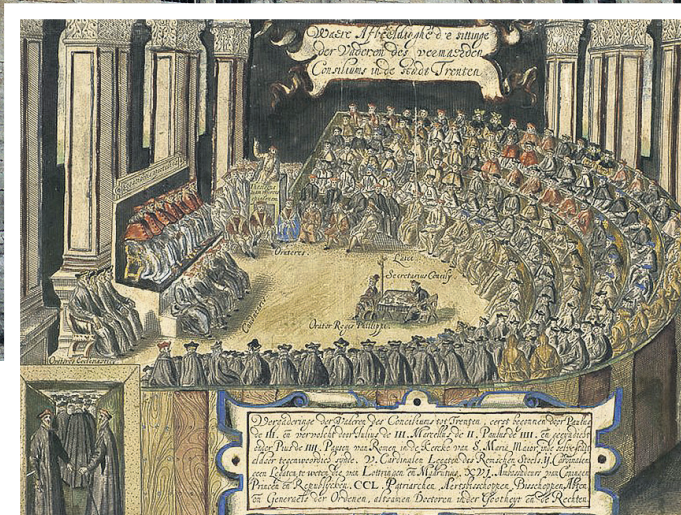 Waere Afbeeldighe der sittinge
der Vaderen des vermaerden
Consiliums in de stadt Trenten
Oratores.
Laici
Secretarius Concily
Orator Regis Philippi.
Oratores Ecclesiastici
Vergaderinge der Vaderen des Consiliums tot Trenten, eerst begonnen door Paulus
de III. en vervolcht door Iulius de III. Marcellus de II. Paulus de IIII. en
door Pius de IIII. Pausen van Romen in de Kercke van S. Maria Maior
aldaer tegenwoordich V. Cardinalen Legaten des Roomschen Stoels. II. Cardinalen
geen Legaten te weten die van Lottringen en XVI. Ambassadeurs van Coningen
Princen en Republijcken. CCL. Patriarchen Aertsbisschoppen, Bisschoppen, Abten
en Generaels der Ordenen, altsamen Doctoren in der Godtheyt en de Rechten.